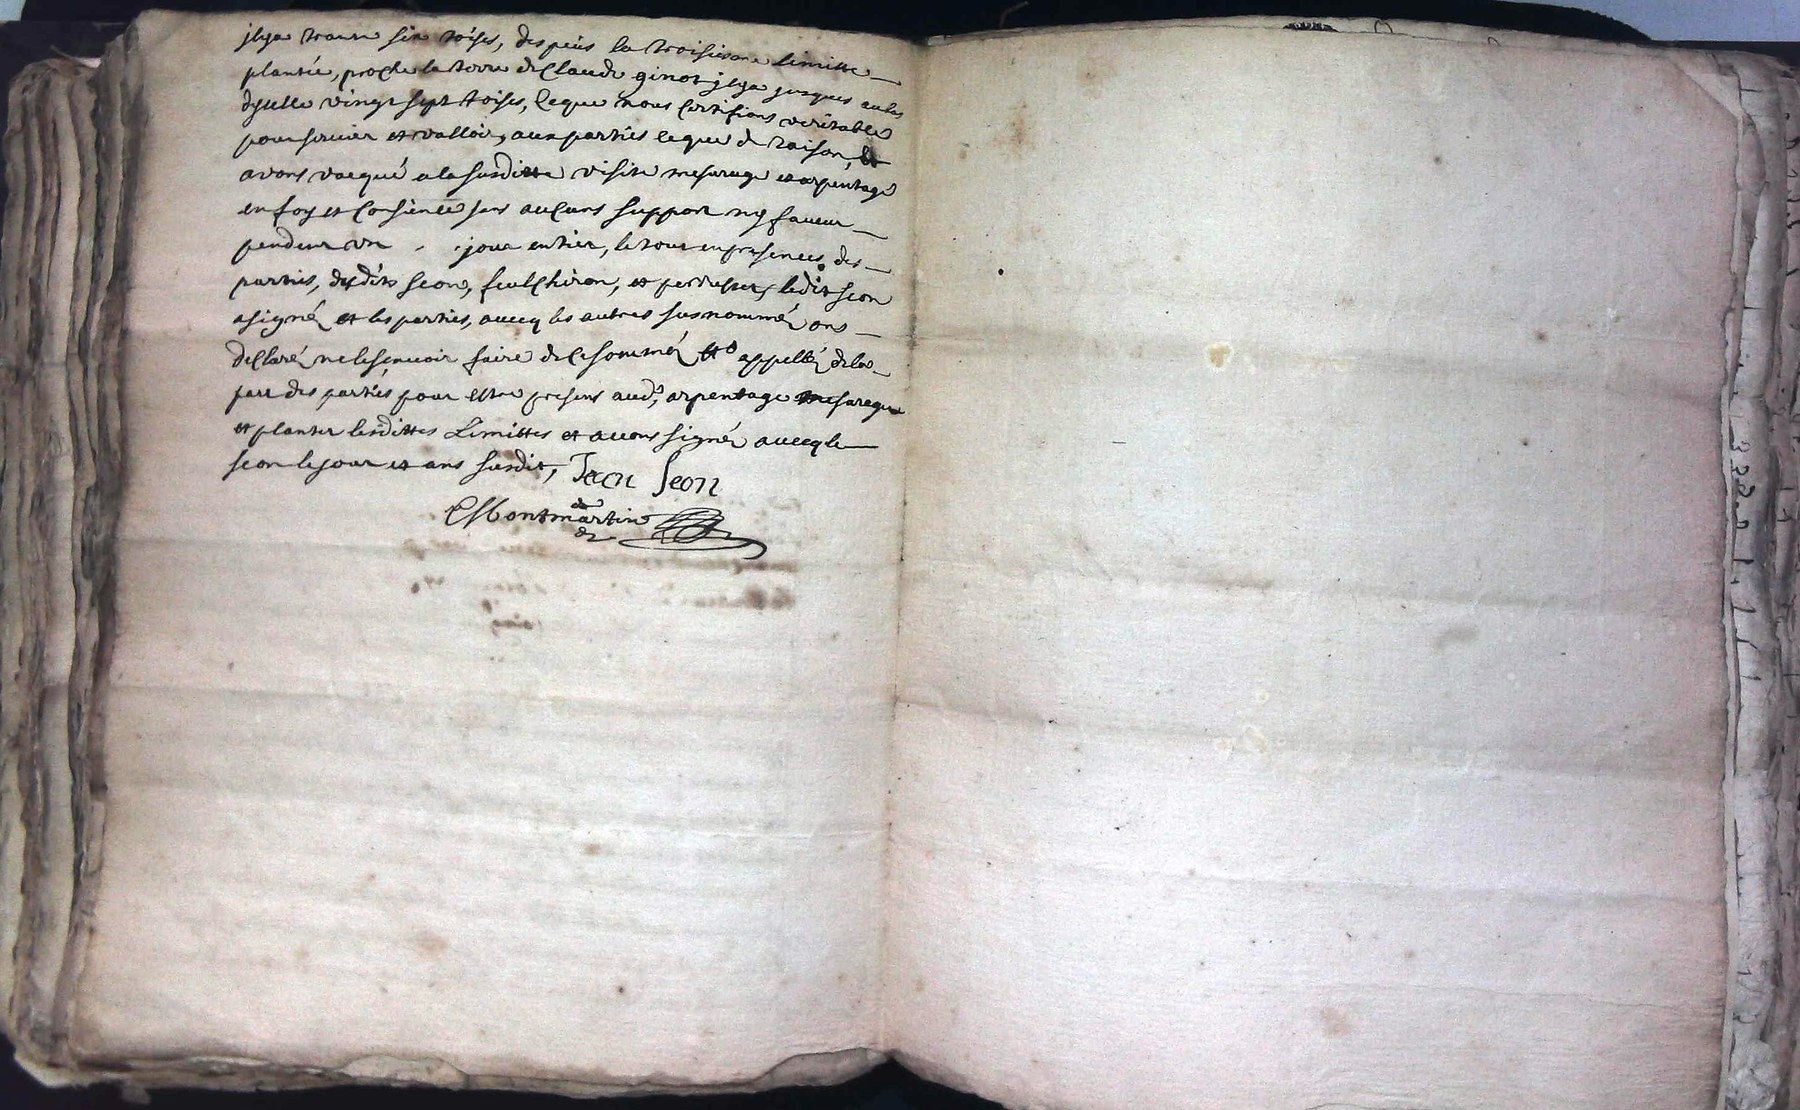 jlya trante six toises, despuis la troisiesme limitte
plantée, proche la terre de Claude ginot jlya jusques au bas
dycelle vingt sept toises, Ceque nous Certifions veritable
pour seruir et valloir, aux parties ceque de raison, et
avons vacqué a la susditte visite mesurage et arpentage
en foy et Consience sans aucuns support ny faueur
pendant un jour entier, le tout en presences des
parties, desdits seon, feulchiron, et perdusset, ledit seon
a signé et les parties, auecq les autres susnommés ont
declaré ne le scauoir faire de ce sommés appellés de la
part des parties pour estre presens aud.t arpentage mesurage
et planter lesdittes Limittes et auons signé auecq le
seon le jour et ans susdit, Jean Seon
Montmartin